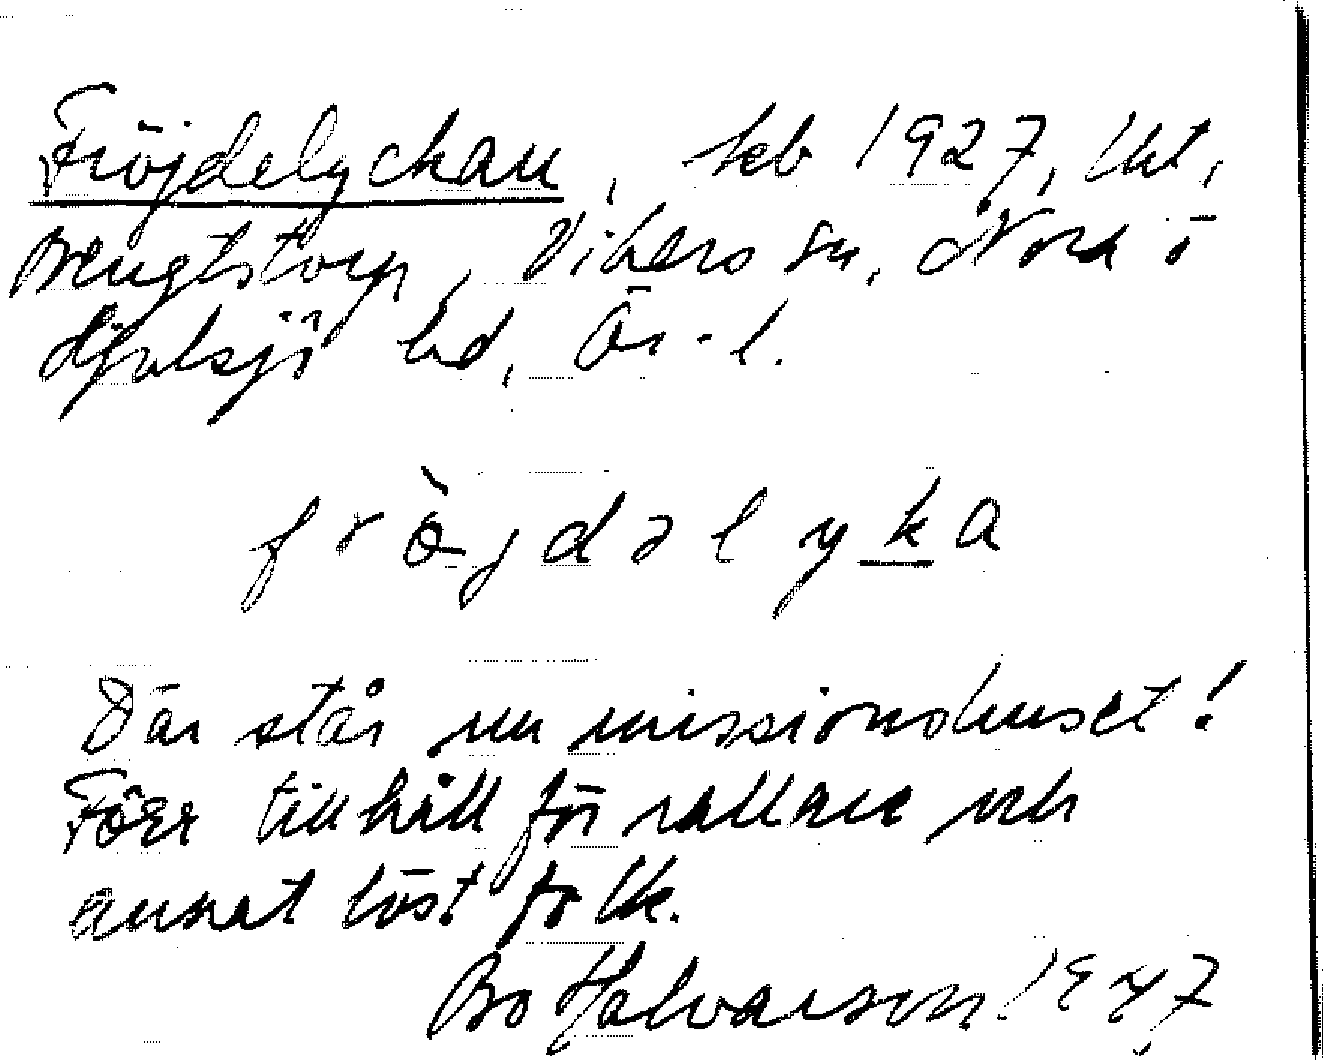 Fröjdelyckan, leb 1927, Uht,
Bengtstorp, Vikers sn, Nora o
Hjulsjö bd, Ör-l.
fröjdəlyka
Där står nu missionshuset!
Förr tillhåll för rallare och
annat löst folk.
Bo Halvarson 1947